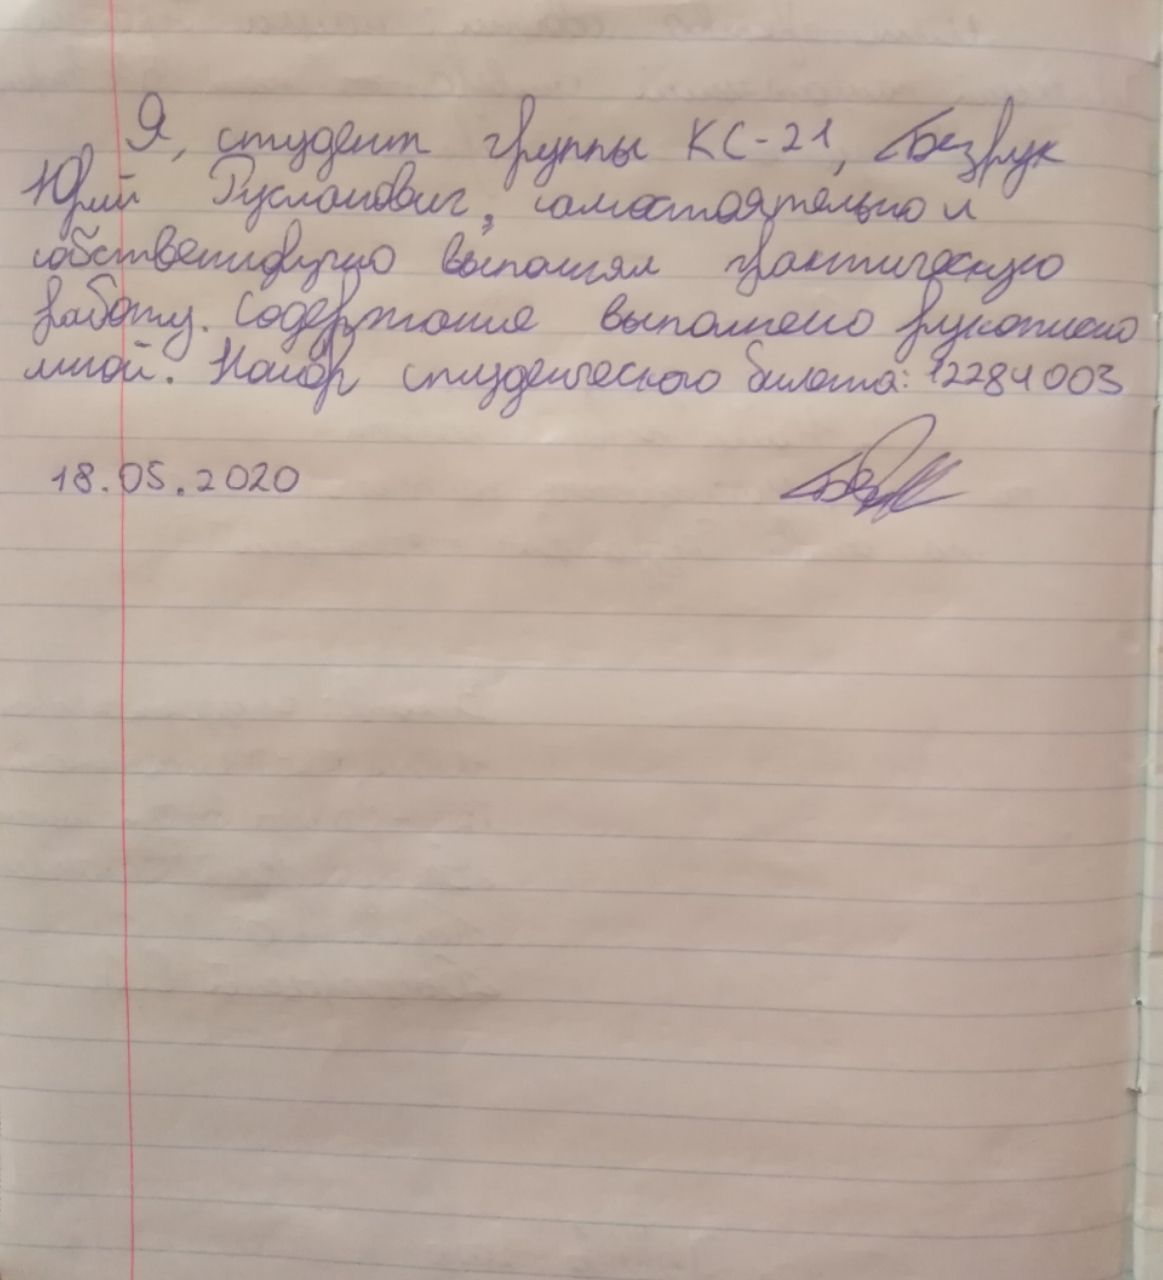 Я, студент группы КС-21, Безрук
Юрий Русланович, самостоятельно и
собственноручно выполнял практическую
работу. Содержание выполнено рукописно
мной. Номер студенческого билета: 12284003
18.05.2020